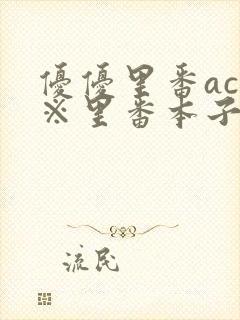 優優里番ac
※里番本子
流民